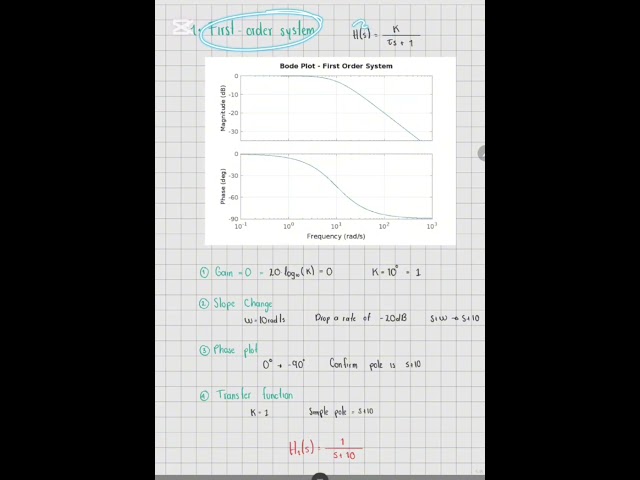 1. First-order system
H(s) = K / τs + 1
Bode Plot - First Order System
Magnitude (dB)
0
-10
-20
-30
Phase (deg)
0
-30
-60
-90
10^-1 10^0 10^1 10^2 10^3
Frequency (rad/s)
① Gain = 0 - 20·log₁₀(K) = 0 K = 10^0 = 1
② Slope Change
ω = 10 rad/s Drop a rate of -20dB s+ω → s+10
③ Phase plot
0° → -90° Confirm pole is s+10
④ Transfer function
K = 1 Simple pole = s+10
H₁(s) = 1 / s + 10